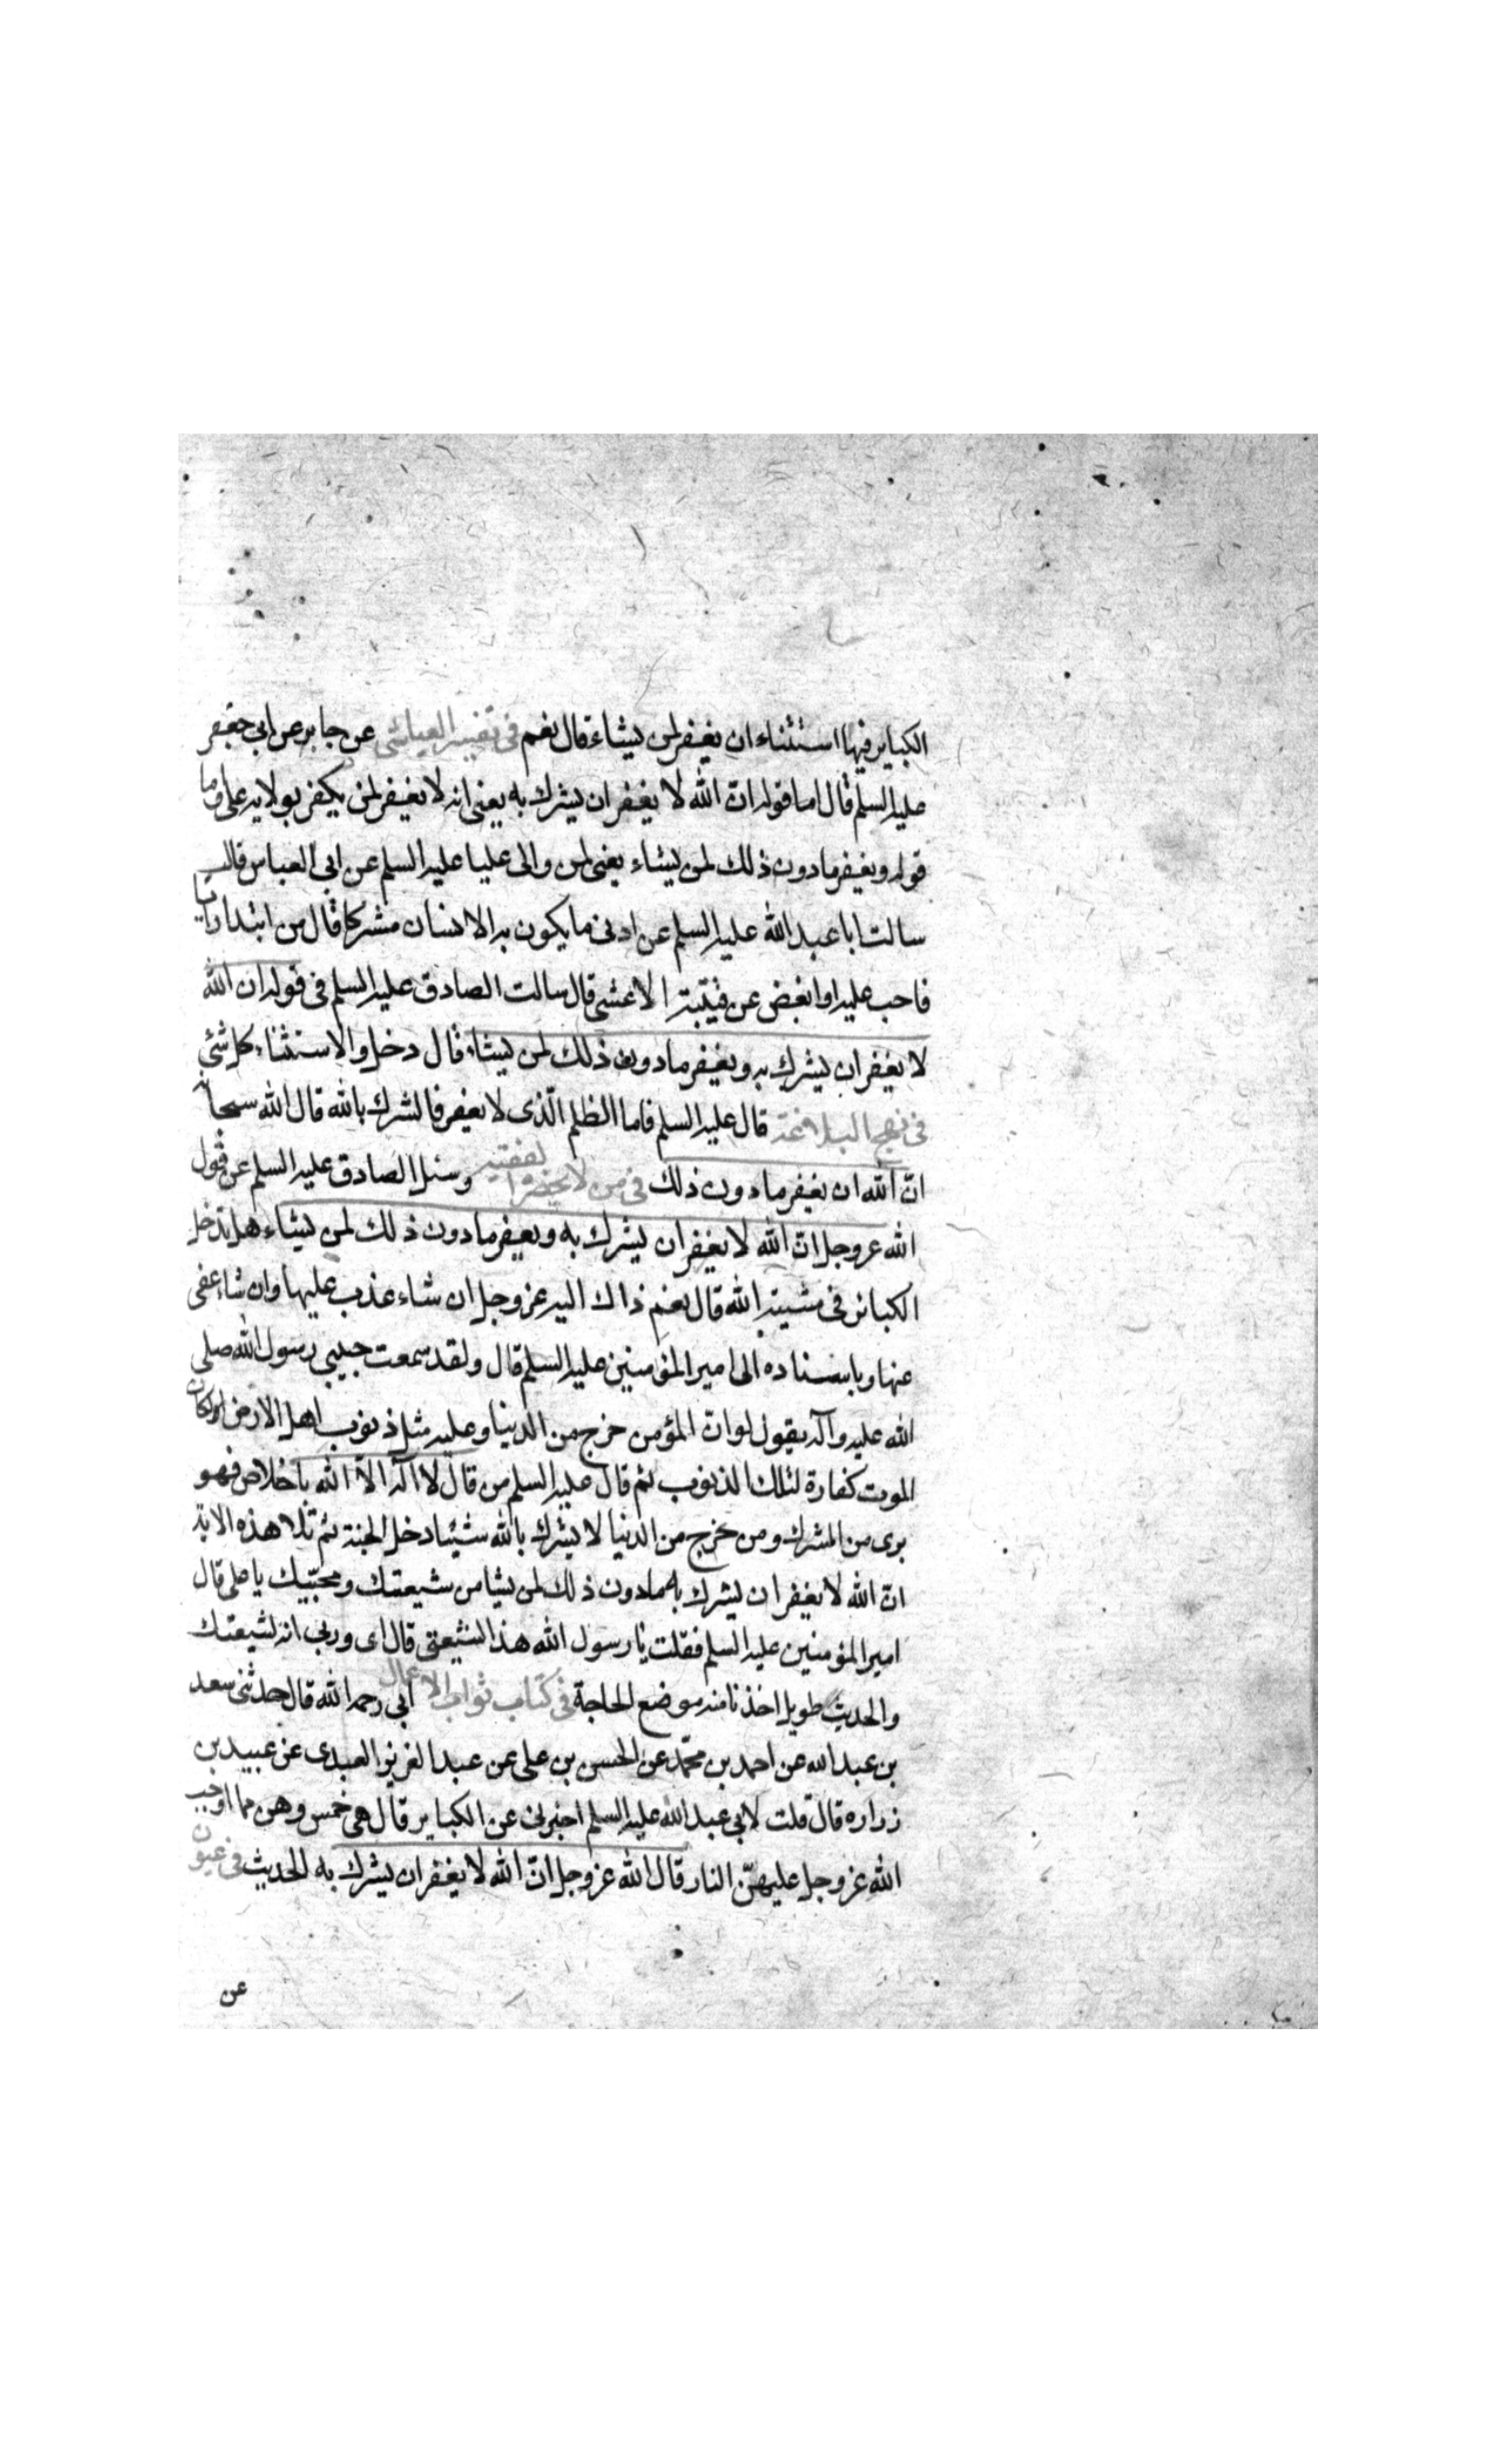 الكباير فيها استثناء ان يغفر لمن يشاء قال نعم في تفسير العياشي عن جابر عن ابي جعفر
عليه السلم قال اما قوله انّ الله لا يغفر ان يشرك به يعني انه لا يغفر لمن يكفر بولايه علي واما
قوله ويغفر ما دون ذلك لمن يشاء يعنى لمن والى عليا عليه السلم عن ابي العباس قال
سالت ابا عبد الله عليه السلم عن ادنى ما يكون به الانسان مشركا قال من ابتدا رايا
فاحب عليه او ابغض عن قتيبة الاعشى قال سالت الصادق عليه السلم فى قوله ان الله
لا يغفر ان يشرك به ويغفر ما دون ذلك لمن يشاء قال دخل والاستثناء كل شئ
في نهج البلاغة قال عليه السلم فاما الظلم الّذى لا يغفر فالشرك بالله قال الله سبحانه
انّ الله ان يغفر ما دون ذلك فى من لا يحضره الفقيه وسئل الصادق عليه السلم عن قول
الله عزوجل انّ الله لا يغفر ان يشرك به ويغفر ما دون ذلك لمن يشاء هل تدخل
الكبائر فى مشية الله قال نعم ذاك اليه عزوجل ان شاء عذب عليها وان شاء عفى
عنها وباسناده الى امير المؤمنين عليه السلم قال ولقد سمعت حبيبي رسول الله صلى
الله عليه وآله يقول لو انّ المؤمن خرج من الدنيا وعليه مثل ذنوب اهل الارض لكان
الموت كفارة لتلك الذنوب ثم قال عليه السلم من قال لا اله الّا الله باخلاص فهو
برى من المشرك ومن خرج من الدنيا لا يشرك بالله شيئا دخل الجنة ثم تلا هذه الاية
انّ الله لا يغفر ان يشرك به ما دون ذلك لمن يشا من شيعتك ومحبّيك يا على قال
امير المؤمنين عليه السلم فقلت يا رسول الله هذا لشيعتى قال اى وربى انه لشيعتك
والحديث طويل اخذنا منه موضع الحاجة فى كتاب ثواب الاعمال ابي رحمه الله قال حدثنى سعد
بن عبد الله عن احمد بن محمّد عن الحسن بن على عن عبد العزيز العبدى عن عبيد بن
زراره قال قلت لابي عبد الله عليه السلم اخبرنى عن الكباير قال هى خمس وهن مما اوجب
الله عزوجل عليهنّ النار قال الله عزوجل انّ الله لا يغفر ان يشرك به الحديث فى عيون
عن